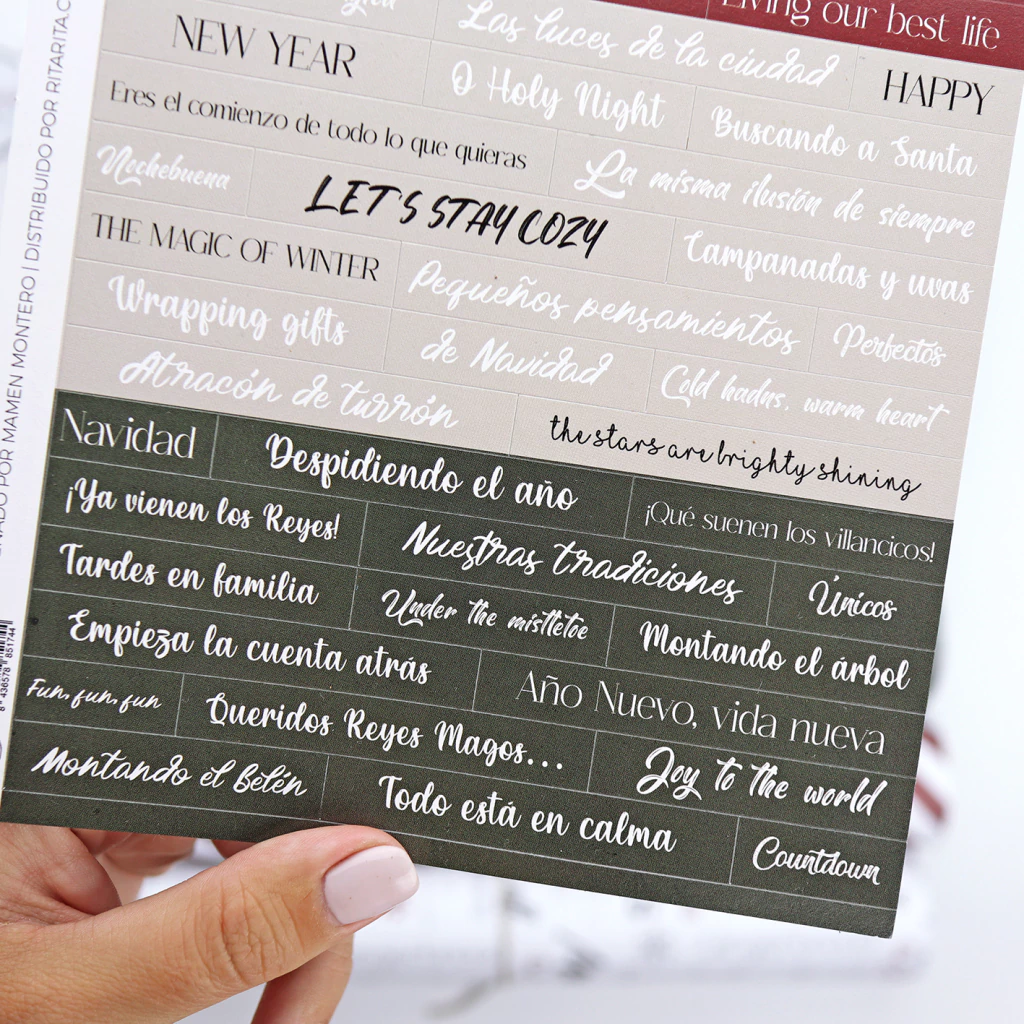 Living our best life
Las luces de la ciudad
NEW YEAR
HAPPY
O Holy Night
Buscando a Santa
Eres el comienzo de todo lo que quieras
La misma ilusión de siempre
Nochebuena
LET'S STAY COZY
Campanadas y uvas
THE MAGIC OF WINTER
Pequeños pensamientos
Perfectos
Wrapping gifts
de Navidad
Cold hadns, warm heart
Atracón de turrón
the stars are brighty shining
Navidad
Despidiendo el año
¡Qué suenen los villancicos!
¡Ya vienen los Reyes!
Nuestras tradiciones
Únicos
Tardes en familia
Under the mistletoe
Montando el árbol
Empieza la cuenta atrás
Año Nuevo, vida nueva
Fun, fun, fun
Queridos Reyes Magos...
Joy to the world
Montando el Belén
Todo está en calma
Countdown
POR MAMEN MONTERO | DISTRIBUIDO POR RITARITA
8 436578 851744